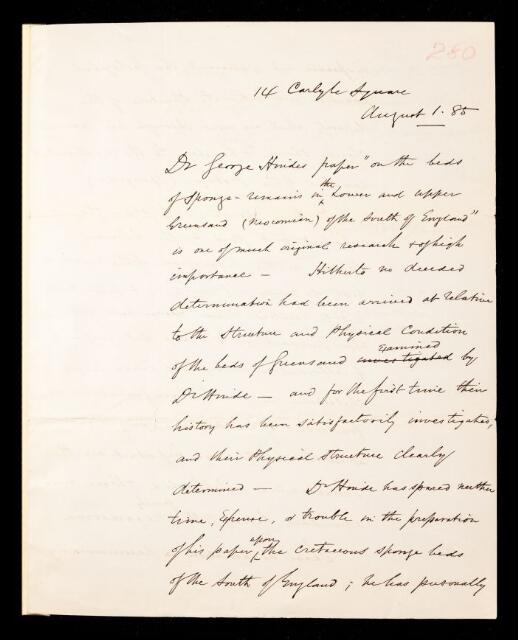 280
14 Carlyle Square
August 1. 85
Dr George Hindes paper "on the beds
of Sponge-remains in the Lower and upper
Greensand (Neocomian) of the South of England"
is one of much original research & of high
importance — Hitherto no decided
determination had been arrived at relative
to the Structure and Physical Condition
of the beds of Greensand investigated examined by
Dr Hinde — and for the first time their
history has been satisfactorily investigated,
and their Physical Structure clearly
determined — Dr Hinde has spared neither
time, Expense, or trouble in the preparation
of his paper upon the cretaceous sponge beds
of the South of England; he has personally